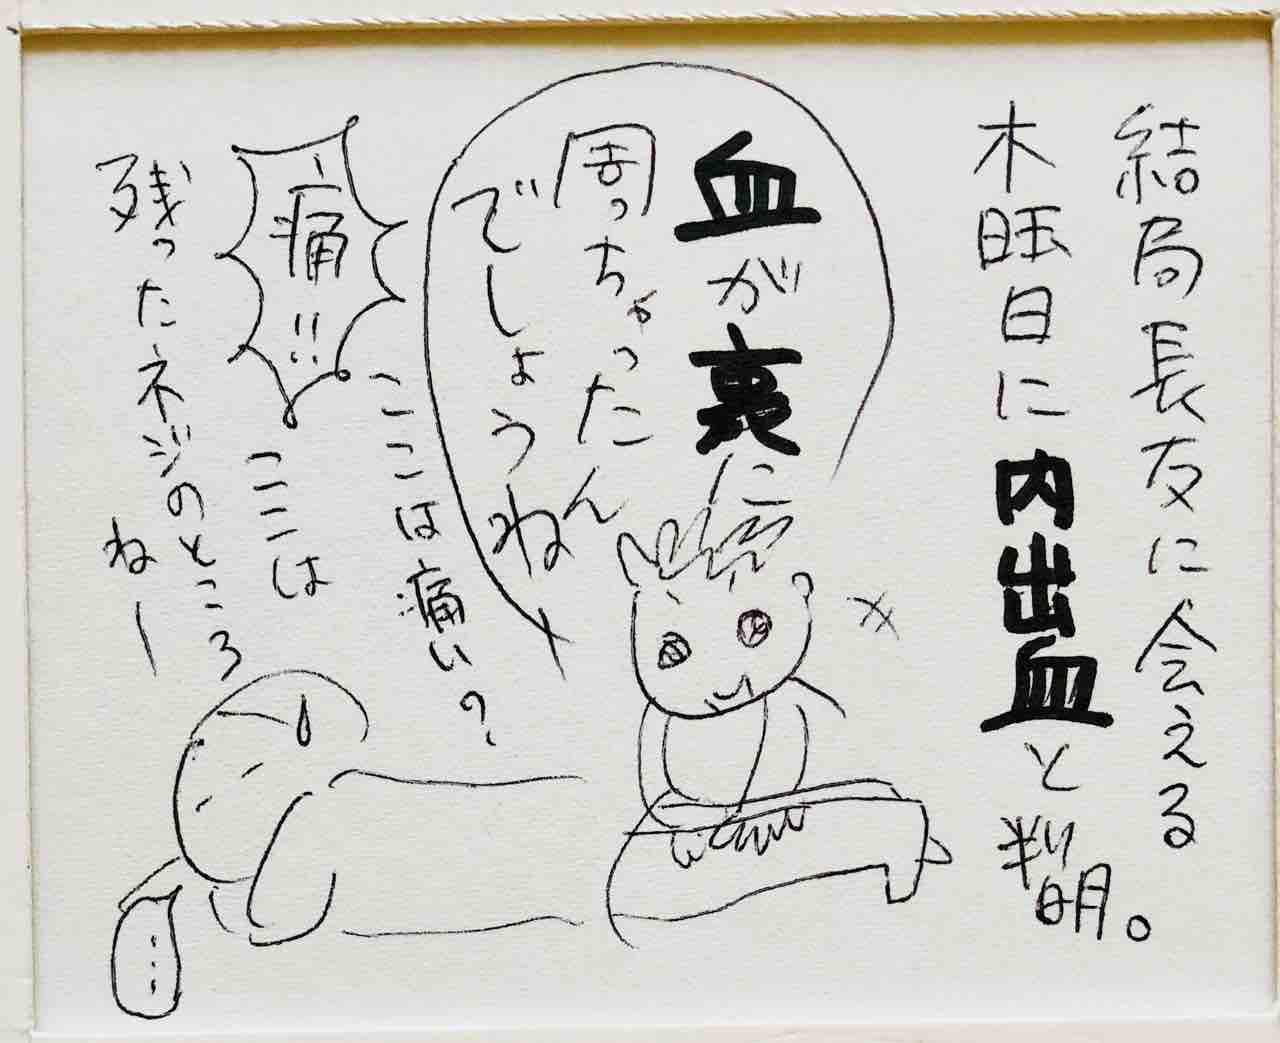 結局長友に会える
木曜日に内出血と判明。
血が裏に
周っちゃったん
でしょうねー
ここは痛い?
痛!!
ここは
残ったネジのところ
ねー
…